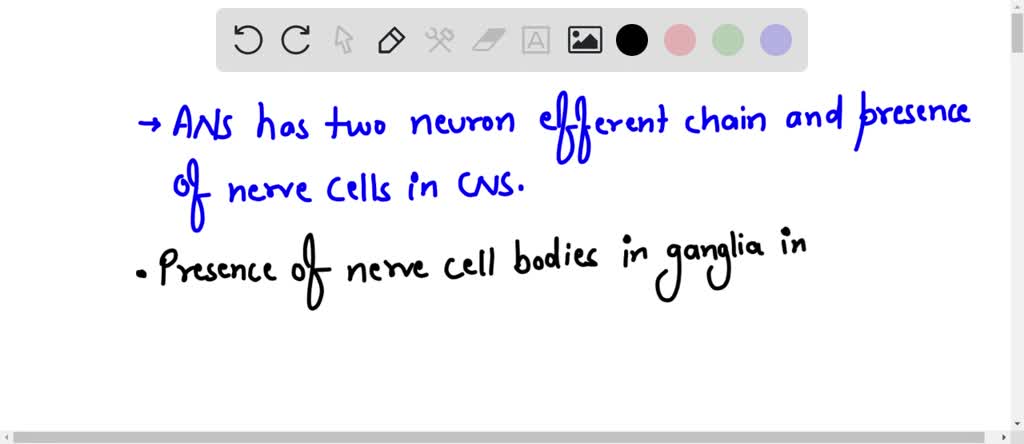 → ANS has two neuron efferent chain and presence
of nerve cells in CNS.
• Presence of nerve cell bodies in ganglia in